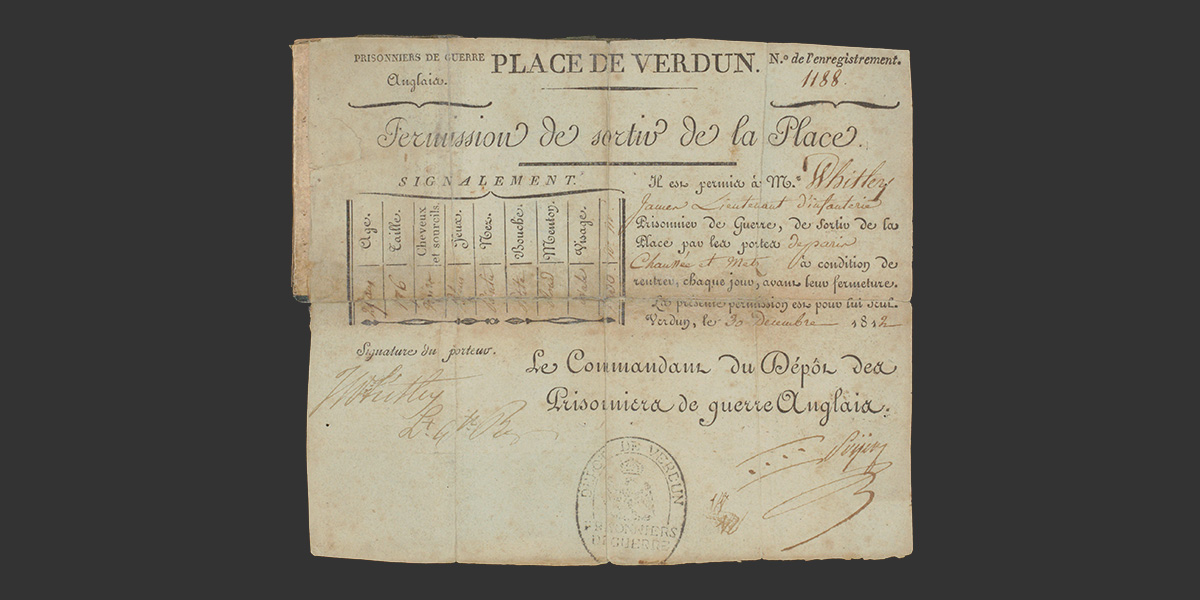 PRISONNIERS DE GUERRE
Anglais.
PLACE DE VERDUN.
N.º de l'enregistrement.
1188.
Permission de sortir de la Place.
SIGNALEMENT.
Age.
Taille.
Cheveux et sourcils.
Yeux.
Nez.
Bouche.
Menton.
Visage.
176
Il est permis à M.r Whitley
James Lieutenant d'infanterie
Prisonnier de Guerre, de Sortir de la
Place par les portes de paris
Chaussée et Metz à condition de
rentrer, chaque jour, avant leur fermeture.
La présente permission est pour lui seul.
Verdun, le 30 decembre 1812
Signature du porteur.
JWhitley
Lt 9th
Le Commandant du Dépôt des
Prisonniers de guerre Anglais.
DEPOT DE VERDUN
PRISONNIERS
DE GUERRE